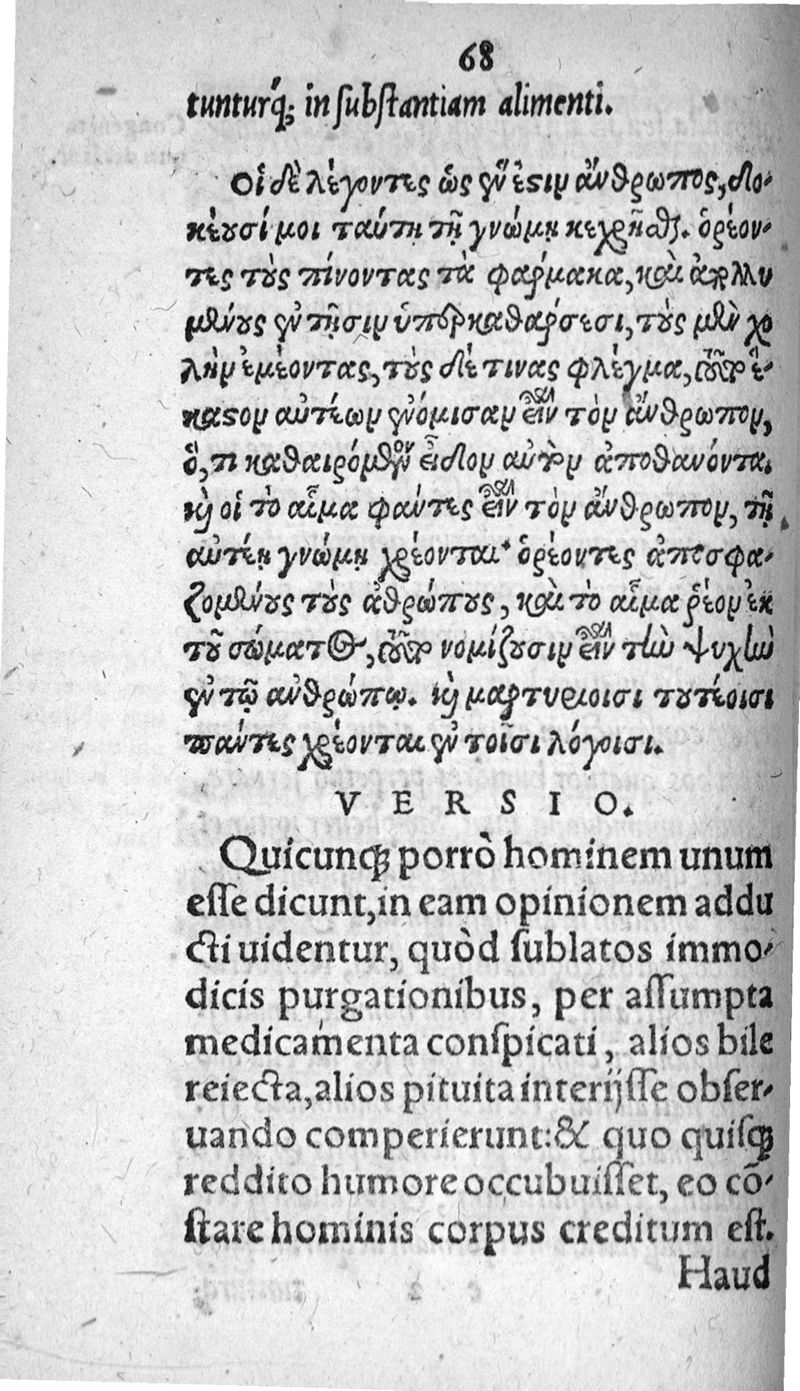 68
tunturq́; in ſubſtantiam alimenti.
Οἱ δὲ λέγοντες ὡς ἕν ἐϛιν ἄνθρωπος, δο-
κέουσί μοι ταύτῃ τῇ γνώμῃ κεχρῆσθαι. ὁρέον-
τες τοὺς πίνοντας τὰ φάρμακα, καὶ ἀπολλυ
μένους ἐν τῇσιν ὑπερκαθάρσεσι, τοὺς μὲν χο
λὴν ἐμέοντας, τοὺς δέ τινας φλέγμα, τοῦτο ἕ-
καϛον αὐτέων ἐνόμισαν εἶναι τὸν ἄνθρωπον,
ὅ, τι καθαιρόμενον εἶδον αὐτὸν ἀποθανόντα.
καὶ οἱ τὸ αἷμα φάντες εἶναι τὸν ἄνθρωπον, τῇ
αὐτέῃ γνώμῃ χρέονται· ὁρέοντες ἀποσφα-
ζομένους τοὺς ἀθρώπους, καὶ τὸ αἷμα ῥέον ἐκ
τοῦ σώματος, τοῦτο νομίζουσιν εἶναι τὴν ψυχὴν
ἐν τῷ ανθρώπῳ. καὶ μαρτυρίοισι τουτέοισι
πάντες χρέονται ἐν τοῖσι λόγοισι.
VERSIO.
Quicunq; porrò hominem unum
eſſe dicunt, in eam opinionem addu
cti uidentur, quòd ſublatos immo-
dicis purgationibus, per aſſumpta
medicamenta conſpicati, alios bile
reiecta, alios pituita interijſſe obſer-
uando comperierunt: & quo quiſq;
reddito humore occubuiſſet, eo cō-
ſtare hominis corpus creditum eſt.
Haud